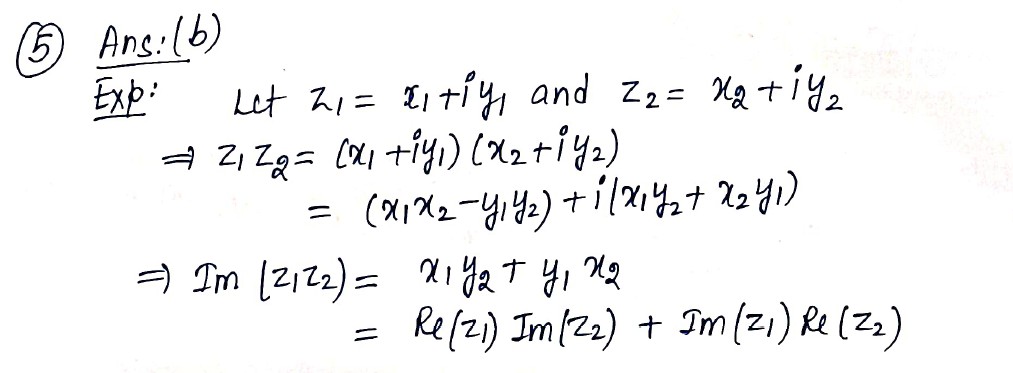 (5) Ans: (b)
Exp: Let z₁ = x₁ + iy₁ and z₂ = x₂ + iy₂
⇒ z₁z₂ = (x₁ + iy₁) (x₂ + iy₂)
= (x₁x₂ - y₁y₂) + i(x₁y₂ + x₂y₁)
⇒ Im (z₁z₂) = x₁y₂ + y₁x₂
= Re(z₁) Im(z₂) + Im(z₁) Re(z₂)